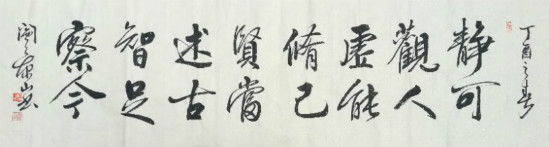 丁酉之春
静可
觀人
虛能
脩己
賢當
述古
智足
察今